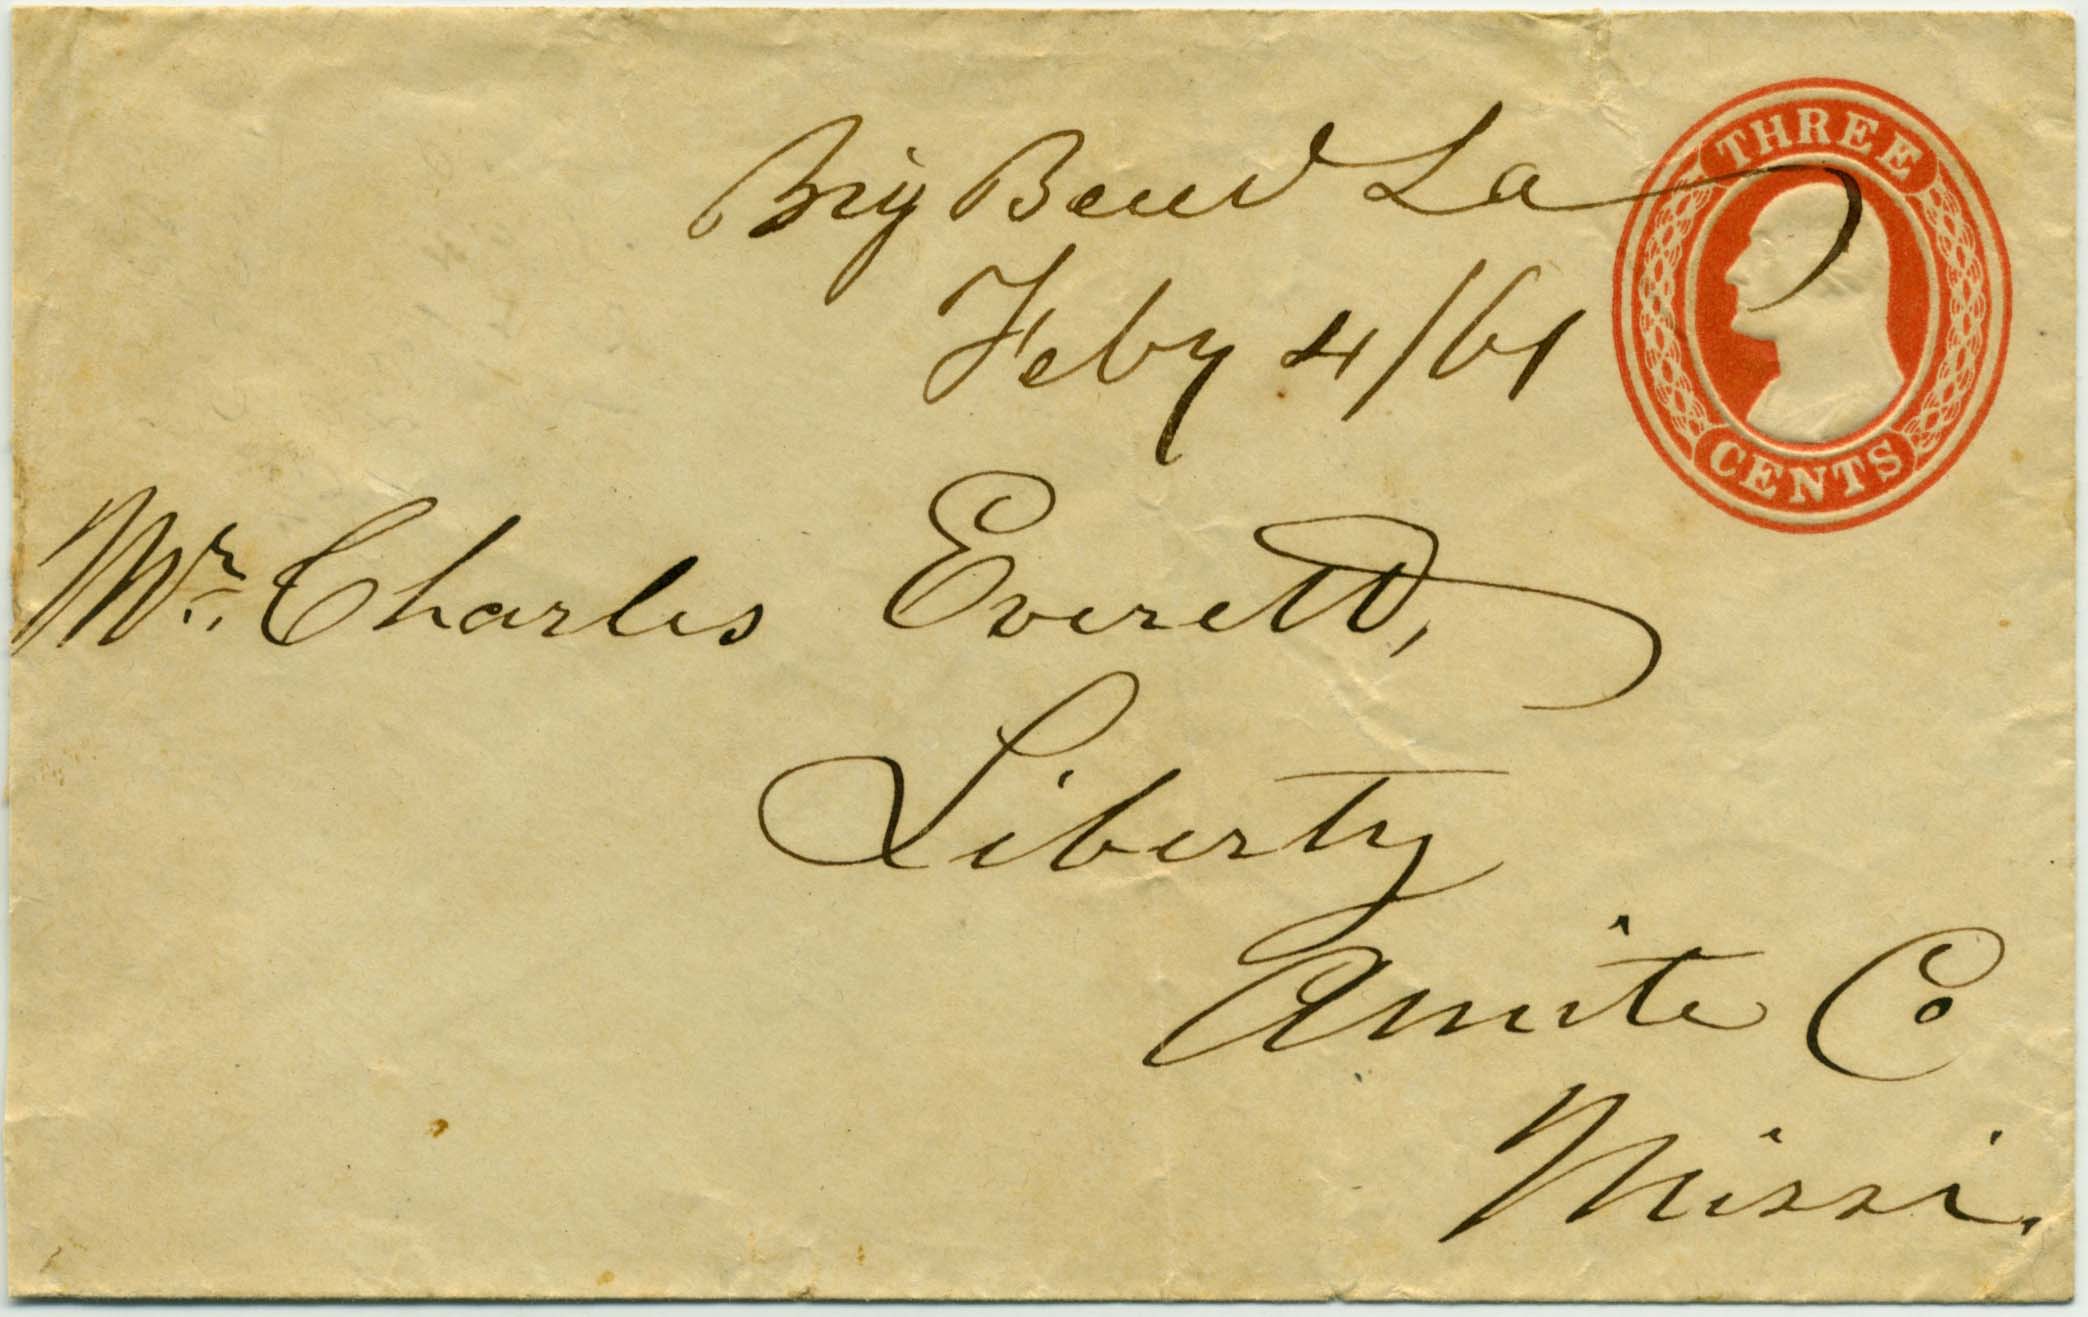 Big Bend La
Feby 4/61
THREE
CENTS
Mr. Charles Everett,
Liberty
Amite Co
Missi.